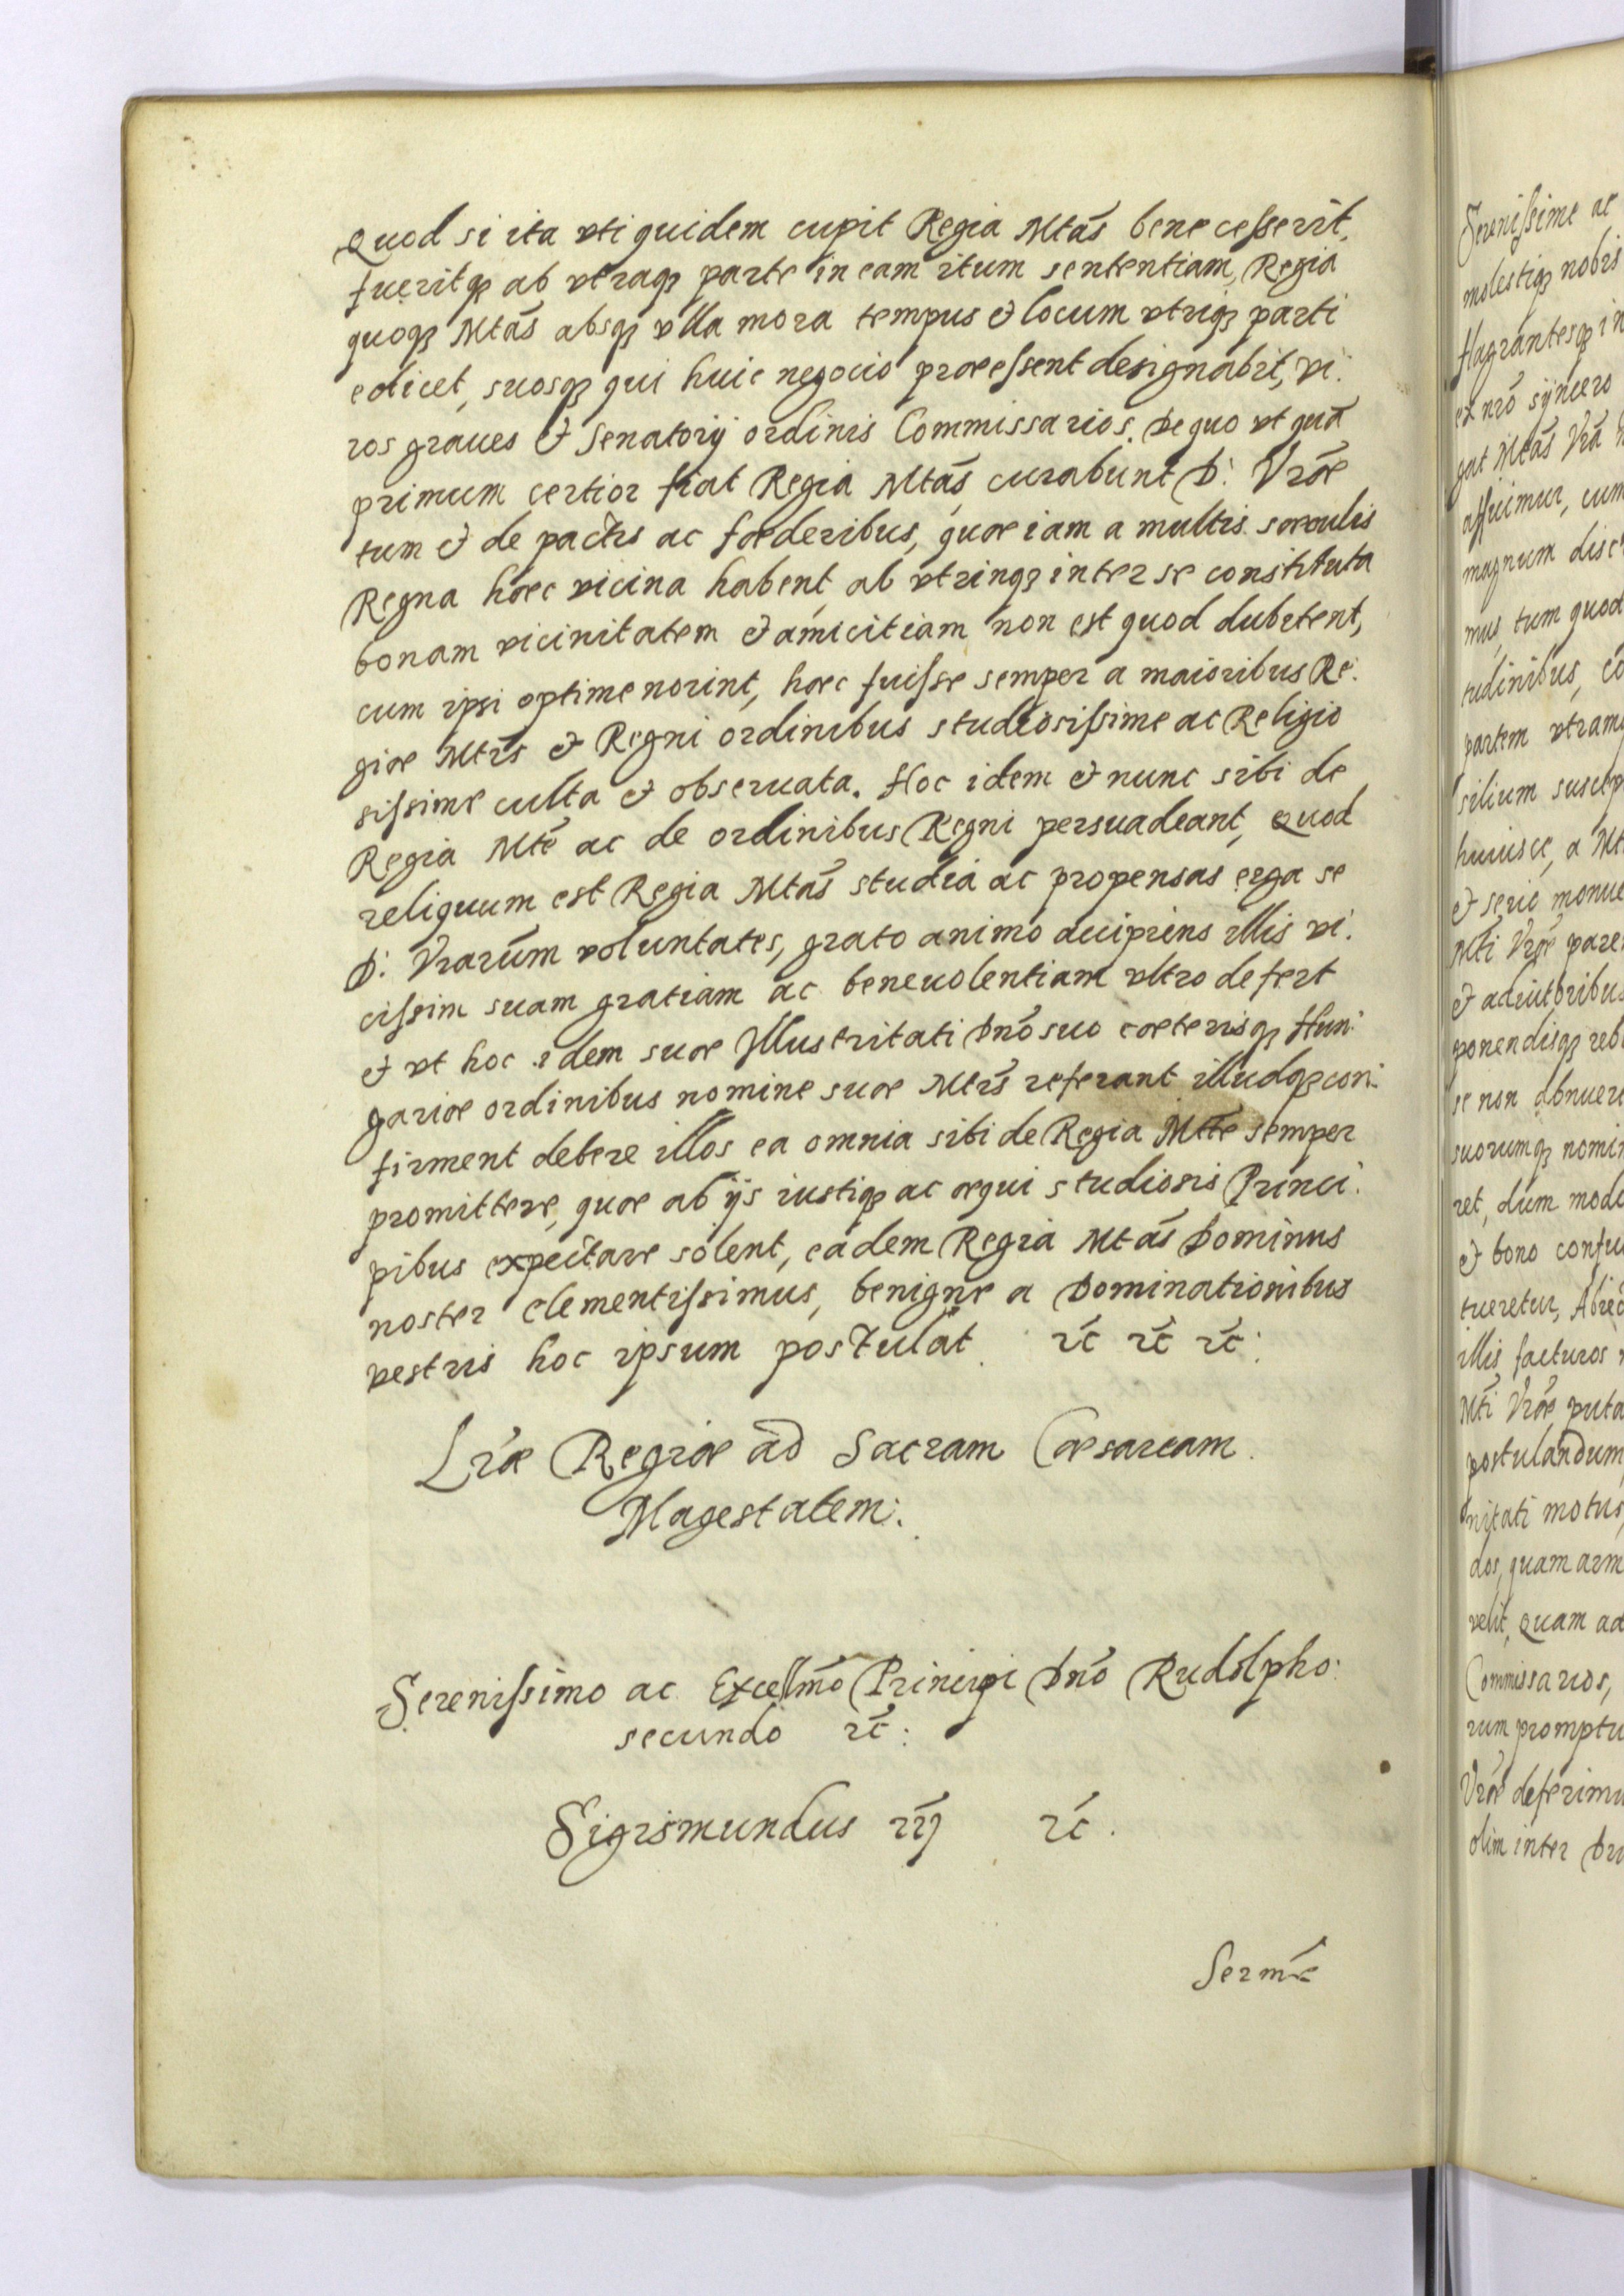 Quod si ita vti quidem cupit Regia Mtas bene cesserit,
fueritq3 ab vtraq3 parte in eam itum sententiam, Regia
quoq3 Mtas absq3 vlla mora tempus & locum vtriq3 parti
edicet, suosq3 qui huic negocio præessent designabit, vi:
ros graues & Senatorij ordinis Commissarios. De quo vt quā
primum certior fiat Regia Mtas curabunt D: Vræ
tum & de pactis ac fœderibus, quæ iam a multis sæculis
Regna hæc vicina habent, ab vtrinq3 inter se constituta
bonam vicinitatem & amicitiam non est quod dubitent,
cum ipsi optime norint, hæc fuisse semper a maioribus Re:
giæ Mtis & Regni ordinibus studiosissime ac Religio
sissime culta & obseruata. Hoc idem & nunc sibi de
Regia Mte ac de ordinibus Regni persuadeant, Quod
reliquum est Regia Mtas studia ac propensas erga se
D: Vrarum voluntates, grato animo accipiens illis vi:
cissim suam gratiam ac beneuolentiam vltro defert
& vt hoc idem suæ Illustritati Dno suo cæterisq3 Hun:
gariæ ordinibus nomine suæ Mtis referant illudq3 con:
firment debere illos ea omnia sibi de Regia Mtte semper
promittere, quæ ab ijs iustiq3 ac æqui studiosis Princi:
pibus expectare solent, eadem Regia Mtas Dominus
noster clementissimus, benigne a Dominationibus
vestris hoc ipsum postulat. rc rc rc:
Lræ Regiæ ad Sacram Cæsaream
Magestatem:
Serenissimo ac Excellmo Principi Dno Rudolpho:
secundo rc:
Sigismundus rc.
Serme
Serenissime ac
molestiq3 nobis
flagrantesq3 in
ex nro syncero
gat Mtas Vra
afficimur, cum
magnum disc
mus, tum quod
tudinibus, co
partem vtram
silium suscep
huiusce, a Mt
& serio monue
Mti Vræ pare
& adiutoribus
ponendisq3 reb
se non abnuere
suorumq3 nomin
ret, dum modo
& bono confu
tueretur,
illis facturos
Mti Vræ puta
postulandum,
nitati motus,
dos, quam arm
velit, Quam ad
Commissarios,
rum promptu
Vræ deferimu
olim inter